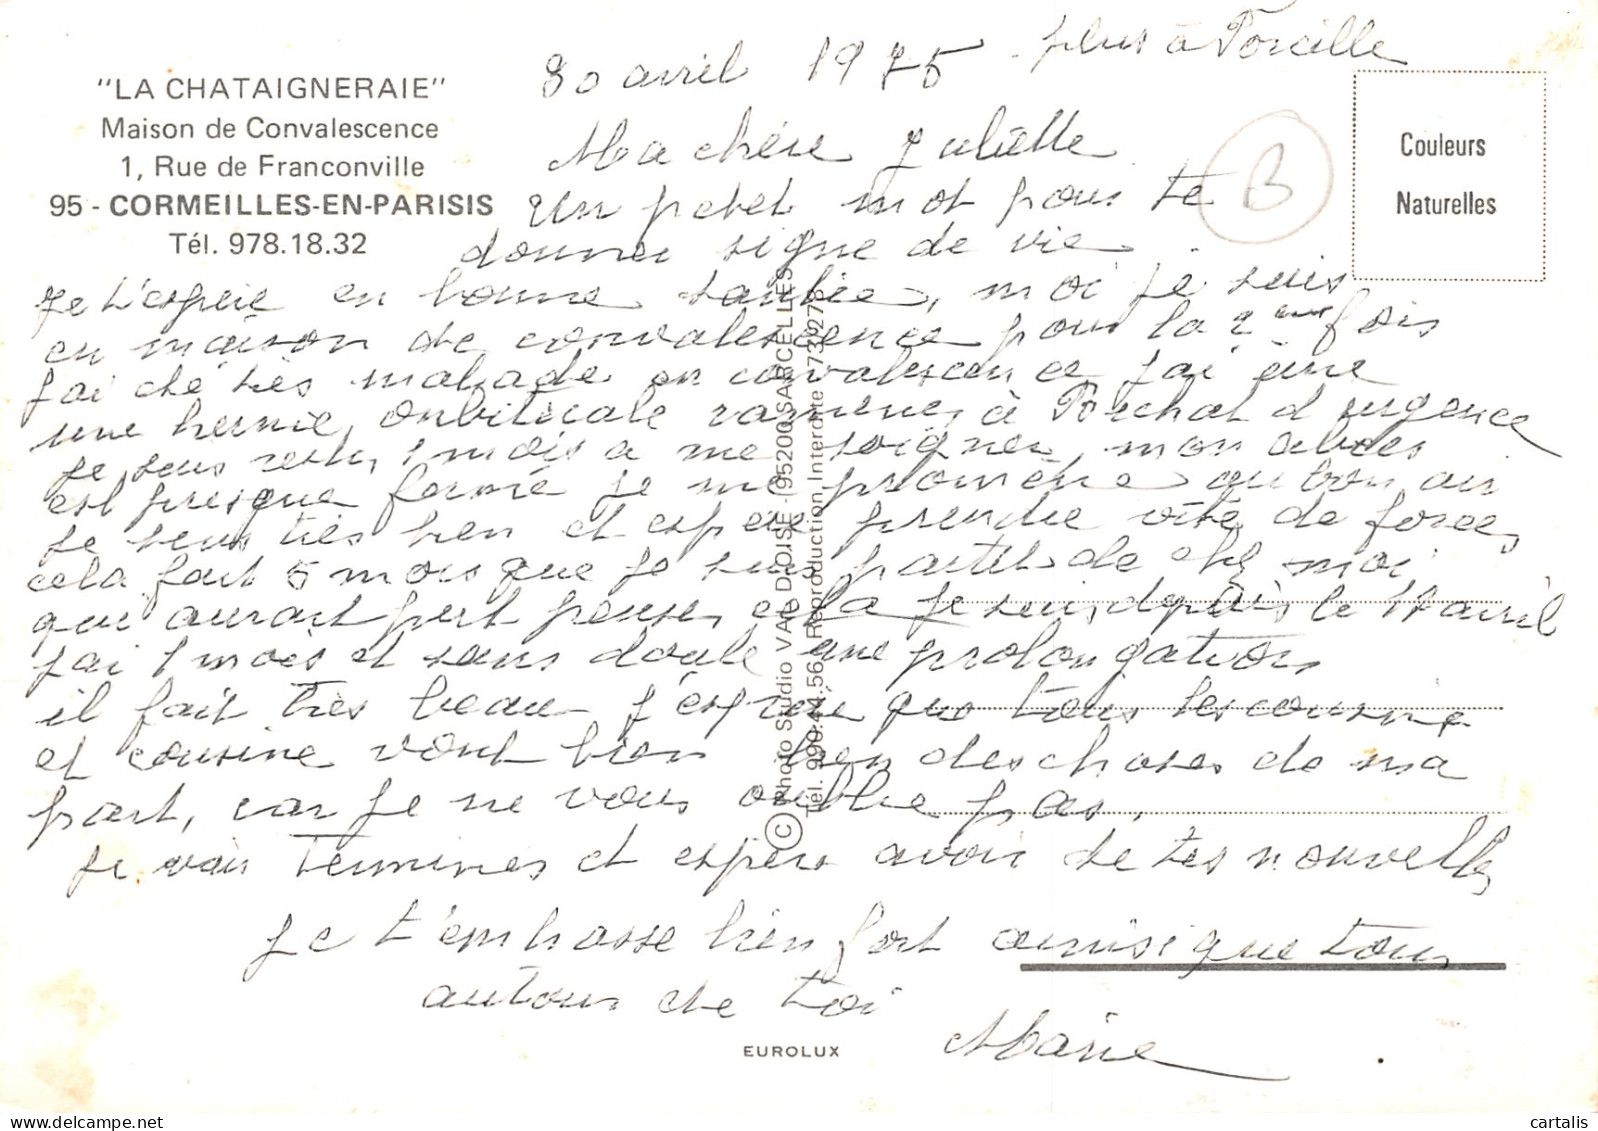 "LA CHATAIGNERAIE"
Maison de Convalescence
1, Rue de Franconville
95 - CORMEILLES-EN-PARISIS
Tél. 978.18.32
30 avril 1975 plus à
Couleurs
Naturelles
B
Ma chère Juliette
Un petit mot pour te
donner signe de vie
Je t'espère en bonne santée, moi je suis
en maison de convalescence pour la 2eme fois
j'ai été très malade en convalescence j'ai
une hernie, onbilicale ramener à d'urgence
je suis rester 1 mois a me soigner, mon abces
est presque fermé je me promène au bon air
je suis très bien et espère prendre vite de forces
cela fait 5 mois que je suis partit de chez moi
qui aurait pert penser cela je suis depuis le 17 avril
j'ai 1 mois et sans doute une prolongation
il fait très beau j'espère que tous les cousins
et cousine vont bien bien des choses de ma
part, car je ne vous oublie pas.
Je vais terminer et espère avoir de tes nouvelles
Je t'embrasse bien fort ainsi que tous
autour de toi
Marie
EUROLUX
© Photo Studio VAL D'OISE - 95200 SARCELLES
Tél. 990.44.56 Reproduction Interdite
cartalis